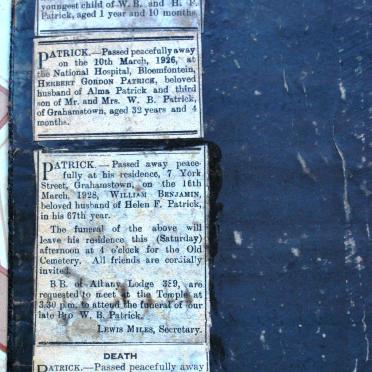 youngest child of W. B. and H. F.
Patrick, aged 1 year and 10 months.
PATRICK.—Passed peacefully away
on the 10th March, 1926, at
the National Hospital, Bloemfontein,
HERBERT GORDON PATRICK, beloved
husband of Alma Patrick and third
son of Mr. and Mrs. W. B. Patrick,
of Grahamstown, aged 32 years and 4
months.
PATRICK. — Passed away peace-
fully at his residence, 7 York
Street, Grahamstown, on the 16th
March, 1928, WILLIAM BENJAMIN,
beloved husband of Helen F. Patrick,
in his 67th year.
The funeral of the above will
leave his residence this (Saturday)
afternoon at 4 o'clock for the Old
Cemetery. All friends are cordially
invited.
B.B. of Albany Lodge 389, are
requested to meet at the Temple at
3.30 p.m. to attend the funeral of our
late Bro W. B. Patrick.
LEWIS MILES, Secretary.
DEATH
PATRICK.—Passed peacefully away